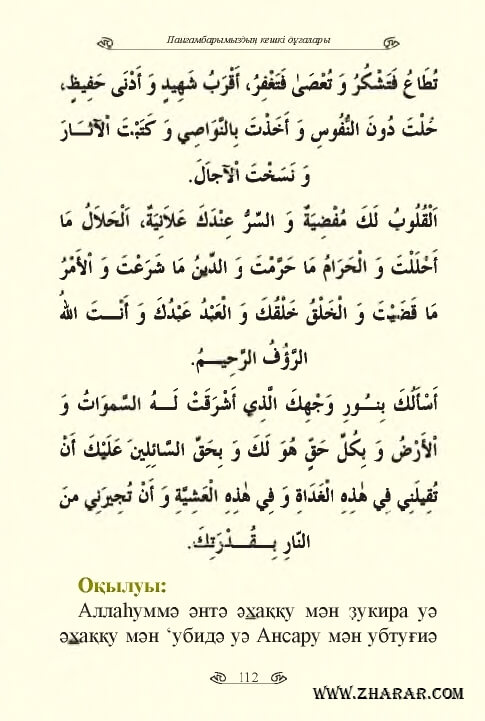 Пайғамбарымыздың кешкі дұғалары
تُطَاعُ فَتَشْكُرُ وَ تُعْصَىٰ فَتَغْفِرُ، أَقْرَبُ شَهِيدٍ وَ أَدْنَى حَفِيظٍ،
حُلْتَ دُونَ النُّفُوسِ وَ أَخَذْتَ بِالنَّوَاصِي وَ كَتَبْتَ الْآثَارَ
وَ نَسَخْتَ الْآجاَلَ.
اَلْقُلُوبُ لَكَ مُفْضِيَةٌ وَ السِّرُّ عِنْدَكَ عَلاَنِيَةٌ، اَلْحَلاَلُ مَا
أَحْلَلْتَ وَ الْحَرَامُ مَا حَرَّمْتَ وَ الدِّينُ مَا شَرَعْتَ وَ الْأَمْرُ
مَا قَضَيْتَ وَ الْخَلْقُ خَلْقُكَ وَ الْعَبْدُ عَبْدُكَ وَ أَنْـتَ اللهُ
الرَّؤُفُ الرَّحِيـمُ.
أَسْأَلُكَ بِنُـورِ وَجْهِكَ الَّذِي أَشْرَقَتْ لَـهُ السَّموَاتُ وَ
الْأَرْضُ وَ بِكُلِّ حَقٍّ هُوَ لَكَ وَ بِحَقِّ السَّائِلِينَ عَلَيْكَ أَنْ
تُقِيلَنِي فِي هٰذِهِ الْغَدَاةِ وَ فِي هٰذِهِ الْعَشِيَّةِ وَ أَنْ تُجِيرَنِي مِنَ
النَّارِ بِـقُـدْرَتِكَ.
Оқылуы:
Аллаһуммә әнтә әхаққу мән ҙукира уә
әхаққу мән ‘убидә уә Ансару мән убтуғиә
112
WWW.ZHARAR.COM